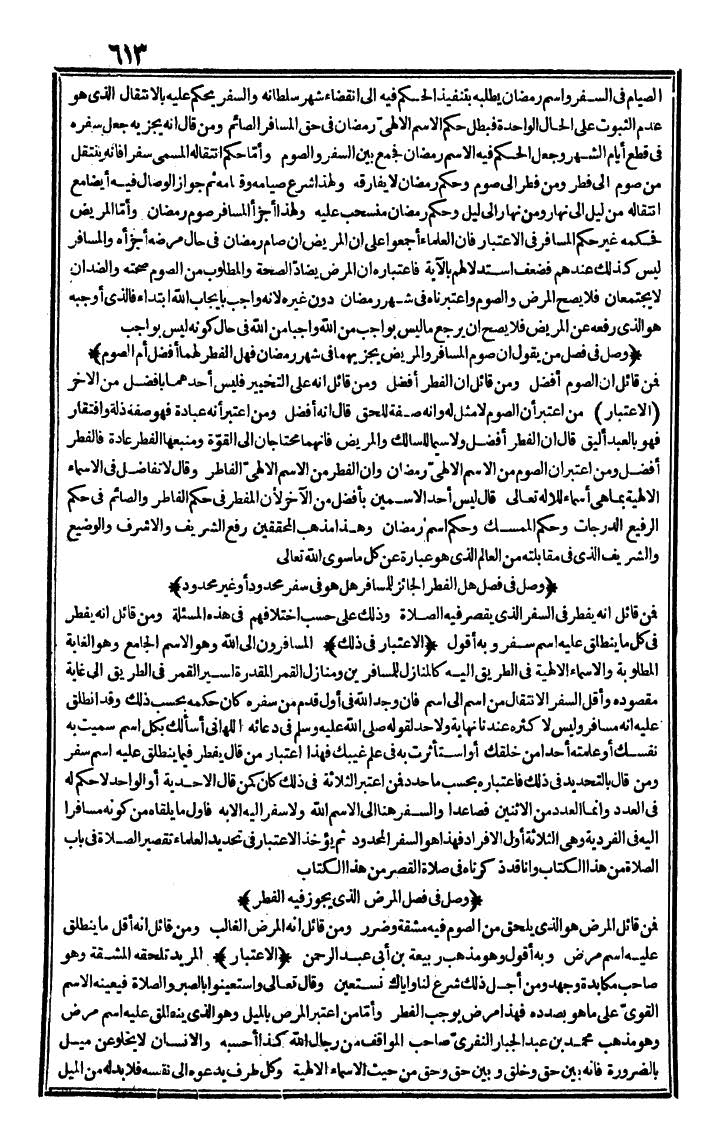 ٦١٣
الصيام فى السفر واسم رمضان يطلبه بتنفيذ الحكم فيه الى انقضاء شهر سلطانه والسفر يحكم عليه بالانتقال الذى هو
عدم الثبوت على الحال الواحدة فبطل حكم الاسم الالهىّ رمضان فى حق المسافر الصائم ومن قال انه يجزيه جعل سفره
فى قطع أيام الشهر وجعل الحكم فيه الاسم رمضان فجمع بين السفر والصوم وأمّا حكم انتقاله المسمى سفرا فانه ينتقل
من صوم الى فطر ومن فطر الى صوم وحكم رمضان لا يفارقه ولهذا شرع صيامه وقيامه ثم جواز الوصال فيه أيضا مع
انتقاله من ليل الى نهار ومن نهار الى ليل وحكم رمضان منسحب عليه ولهذا أجزأ المسافر صوم رمضان وأمّا المريض
فحكمه غير حكم المسافر فى الاعتبار فان العلماء أجمعوا على ان المريض ان صام رمضان فى حال مرضه أجزأه والمسافر
ليس كذلك عندهم فضعف استدلالهم بالآية فاعتباره ان المرض يضادّ الصحة والمطلوب من الصوم صحته والضدان
لا يجتمعان فلا يصح المرض والصوم واعتبرناه فى شهر رمضان دون غيره لانه واجب بايجاب الله ابتداء فالذى أوجبه
هو الذى رفعه عن المريض فلا يصح ان يرجع ما ليس بواجب من الله واجبا من الله فى حال كونه ليس بواجب
﴿وصل فى فصل من يقول ان صوم المسافر والمريض يجزيهما فى شهر رمضان فهل الفطر لهما أفضل أم الصوم﴾
فمن قائل ان الصوم أفضل ومن قائل ان الفطر أفضل ومن قائل انه على التخيير فليس أحدهما بافضل من الاخر
(الاعتبار) من اعتبر أن الصوم لا مثل له وانه صفة للحق قال انه أفضل ومن اعتبر أنه عبادة فهو صفة ذلة وافتقار
فهو بالعبد أليق قال ان الفطر أفضل ولا سيما للسالك والمريض فانهما محتاجان الى القوّة ومنبعها الفطر عادة فالفطر
أفضل ومن اعتبر ان الصوم من الاسم الالهىّ رمضان وان الفطر من الاسم الالهىّ الفاطر وقال لا تفاضل فى الاسماء
الالهية بما هى أسماء للاله تعالى قال ليس أحد الاسمين بأفضل من الآخر لأن المفطر فى حكم الفاطر والصائم فى حكم
الرفيع الدرجات وحكم الممسك وحكم اسم رمضان وهذا مذهب المحققين رفع الشريف والاشرف والوضيع
والشريف الذى فى مقابلته من العالم الذى هو عبارة عن كل ما سوى الله تعالى
﴿وصل فى فصل هل الفطر الجائز للمسافر هل هو فى سفر محدود أو غير محدود﴾
فمن قائل انه يفطر فى السفر الذى يقصر فيه الصلاة وذلك على حسب اختلافهم فى هذه المسئلة ومن قائل انه يفطر
فى كل ما ينطلق عليه اسم سفر وبه أقول ﴿الاعتبار فى ذلك﴾ المسافرون الى الله وهو الاسم الجامع وهو الغاية
المطلوبة والاسماء الالهية فى الطريق اليه كالمنازل للمسافرين ومنازل القمر المقدرة لسير القمر فى الطريق الى غاية
مقصوده وأقل السفر الانتقال من اسم الى اسم فان وجد الله فى أول قدم من سفره كان حكمه بحسب ذلك وقد انطلق
عليه انه مسافر وليس لاكثره عندنا نهاية ولا حد لقوله صلى الله عليه وسلم فى دعائه اللهم انى أسألك بكل اسم سميت به
نفسك أو علمته أحدا من خلقك أو استأثرت به فى علم غيبك فهذا اعتبار من قال يفطر فيما ينطلق عليه اسم سفر
ومن قال بالتحديد فى ذلك فاعتباره بحسب ما حدد فمن اعتبر الثلاثة فى ذلك كان كمن قال الاحدية أو الواحد لا حكم له
فى العدد وانما العدد من الاثنين فصاعدا والسفر هنا الى الاسم الله ولا سفر اليه الا به فاول ما يلقاه من كونه مسافرا
اليه فى الفردية وهى الثلاثة أول الافراد فهذا هو السفر المحدود ثم يؤخذ الاعتبار فى تحديد العلماء تقصير الصلاة فى باب
الصلاة من هذا الكتاب وانا قد ذكرناه فى صلاة القصر من هذا الكتاب
﴿وصل فى فصل المرض الذى يجوز فيه الفطر﴾
فمن قائل المرض هو الذى يلحق من الصوم فيه مشقة وضرر ومن قائل انه المرض الغالب ومن قائل انه أقل ما ينطلق
عليه اسم مرض وبه أقول وهو مذهب ربيعة بن أبى عبد الرحمن ﴿الاعتبار﴾ المريد تلحقه المشقة وهو
صاحب مكابدة وجهد ومن أجل ذلك شرع لنا واياك نستعين وقال تعالى واستعينوا بالصبر والصلاة فيعينه الاسم
القوىّ على ما هو بصدده فهذا مرض يوجب الفطر وأمّا من اعتبر المرض بالميل وهو الذى ينطلق عليه اسم مرض
وهو مذهب محمد بن عبد الجبار النفرىّ صاحب المواقف من رجال الله كذا أحسبه والانسان لا يخلو عن ميل
بالضرورة فانه بين حق وخلق وبين حق وحق من حيث الاسماء الالهية وكل طرف يدعوه الى نفسه فلا بد له من الميل